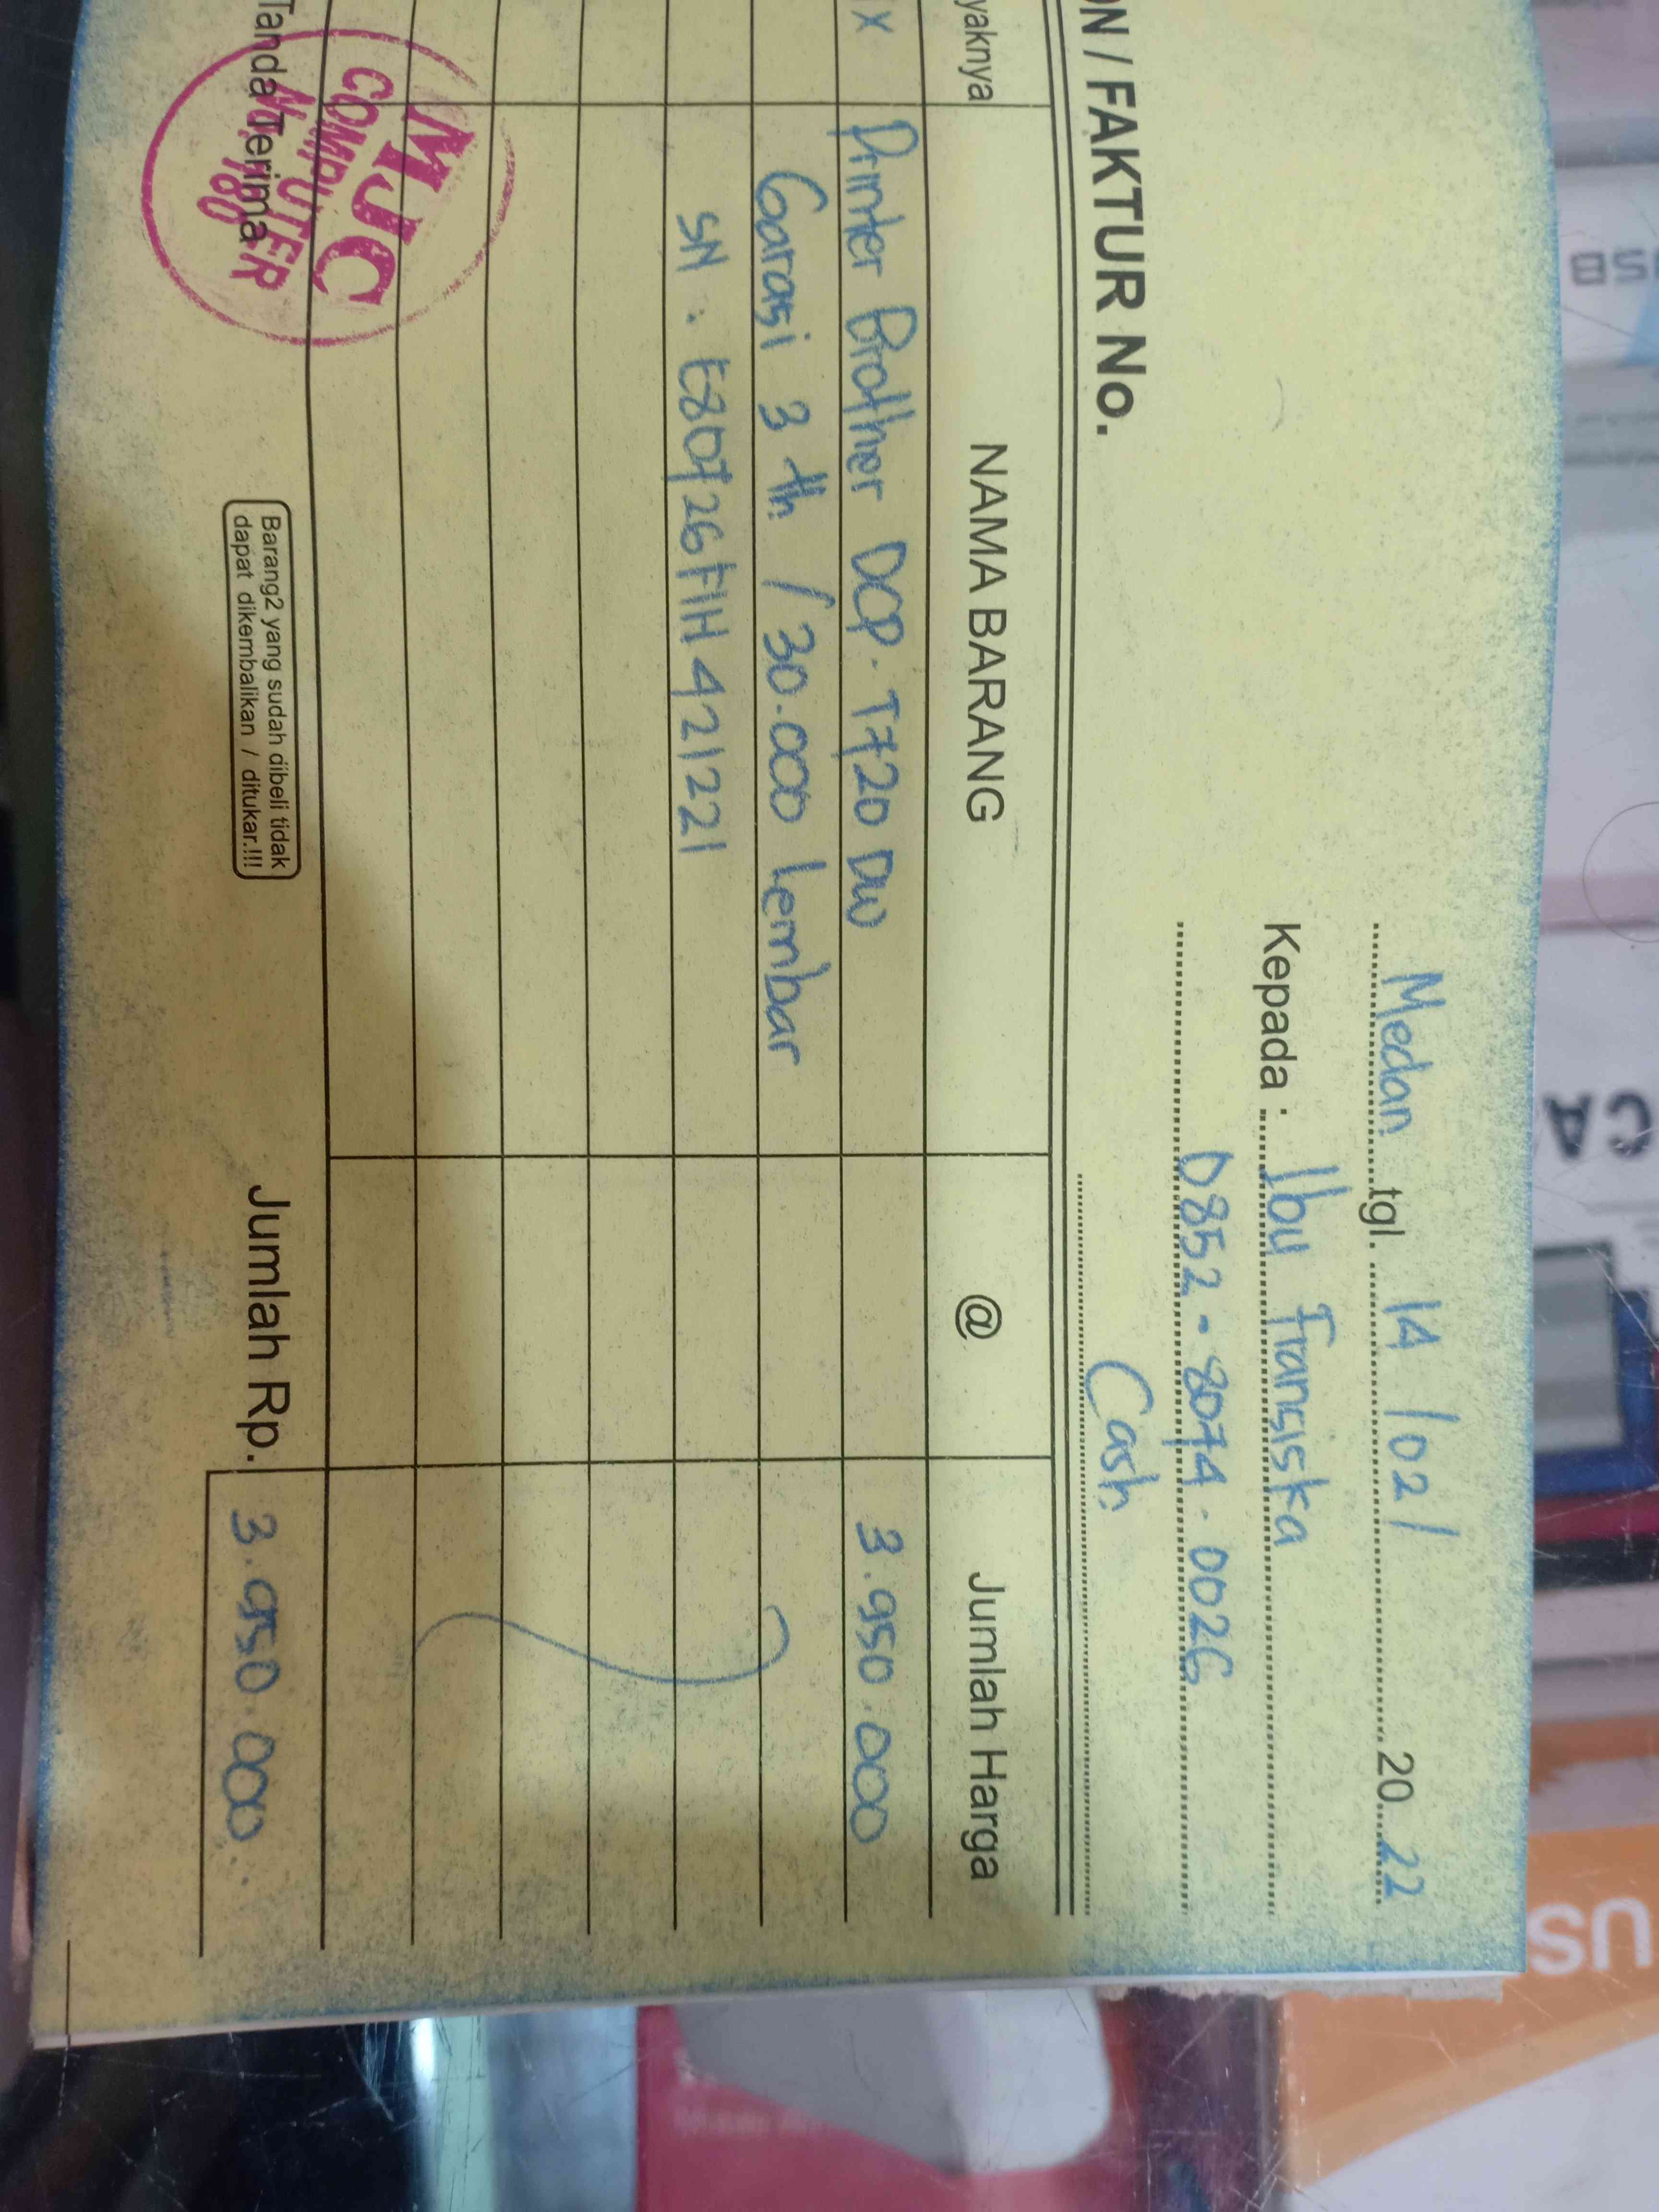 Medan tgl. 14/02/ 2022
Kepada : Ibu Fransiska
0852-8074.0026
ON / FAKTUR No.
Cash
yaknya NAMA BARANG @ Jumlah Harga
x Printer Brother DCP.T720DW 3.950.000
Garasi 3 th / 30.000 lembar
SN : E80726F1H421221
Tanda Terima
MJC
COMPUTER
Barang2 yang sudah dibeli tidak
dapat dikembalikan / ditukar.!!!
Jumlah Rp. 3.950.000
USB
CA
US